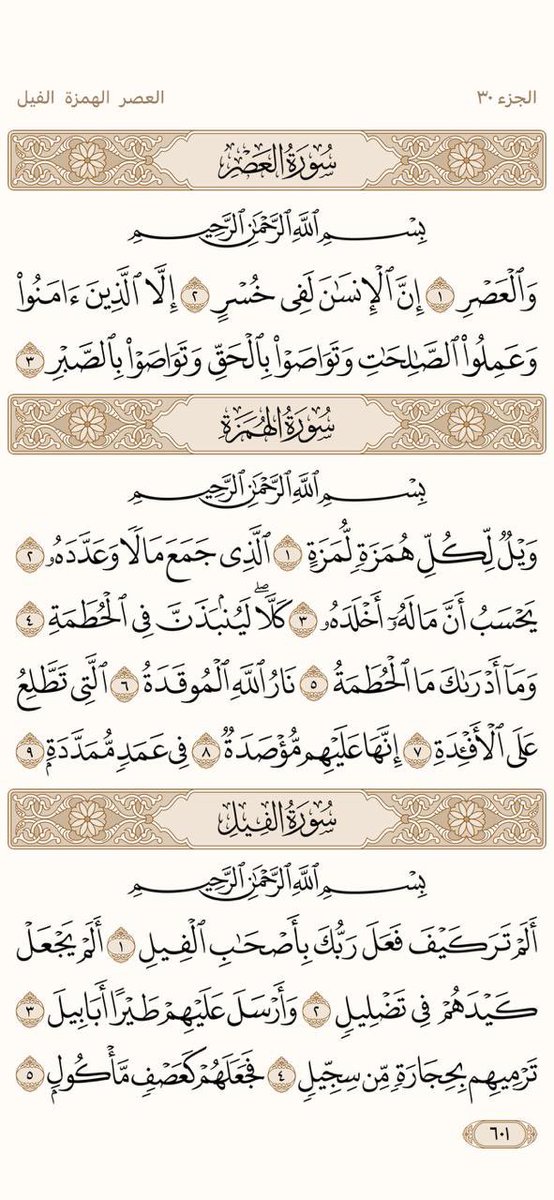 الجزء ٣٠
العصر الهمزة الفيل
سُورَةُ العَصْرِ
بِسْمِ ٱللَّهِ ٱلرَّحْمَٰنِ ٱلرَّحِيمِ
وَٱلْعَصْرِ ١ إِنَّ ٱلْإِنسَٰنَ لَفِى خُسْرٍ ٢ إِلَّا ٱلَّذِينَ ءَامَنُوا۟
وَعَمِلُوا۟ ٱلصَّٰلِحَٰتِ وَتَوَاصَوْا۟ بِٱلْحَقِّ وَتَوَاصَوْا۟ بِٱلصَّبْرِ ٣
سُورَةُ الهُمَزَةِ
بِسْمِ ٱللَّهِ ٱلرَّحْمَٰنِ ٱلرَّحِيمِ
وَيْلٌ لِّكُلِّ هُمَزَةٍ لُّمَزَةٍ ١ ٱلَّذِى جَمَعَ مَالًا وَعَدَّدَهُۥ ٢
يَحْسَبُ أَنَّ مَالَهُۥٓ أَخْلَدَهُۥ ٣ كَلَّا ۖ لَيُنۢبَذَنَّ فِى ٱلْحُطَمَةِ ٤
وَمَآ أَدْرَىٰكَ مَا ٱلْحُطَمَةُ ٥ نَارُ ٱللَّهِ ٱلْمُوقَدَةُ ٦ ٱلَّتِى تَطَّلِعُ
عَلَى ٱلْأَفْـِٔدَةِ ٧ إِنَّهَا عَلَيْهِم مُّؤْصَدَةٌ ٨ فِى عَمَدٍ مُّمَدَّدَةٍۭ ٩
سُورَةُ الفِيلِ
بِسْمِ ٱللَّهِ ٱلرَّحْمَٰنِ ٱلرَّحِيمِ
أَلَمْ تَرَ كَيْفَ فَعَلَ رَبُّكَ بِأَصْحَٰبِ ٱلْفِيلِ ١ أَلَمْ يَجْعَلْ
كَيْدَهُمْ فِى تَضْلِيلٍ ٢ وَأَرْسَلَ عَلَيْهِمْ طَيْرًا أَبَابِيلَ ٣
تَرْمِيهِم بِحِجَارَةٍ مِّن سِجِّيلٍ ٤ فَجَعَلَهُمْ كَعَصْفٍ مَّأْكُولٍۭ ٥
٦٠١